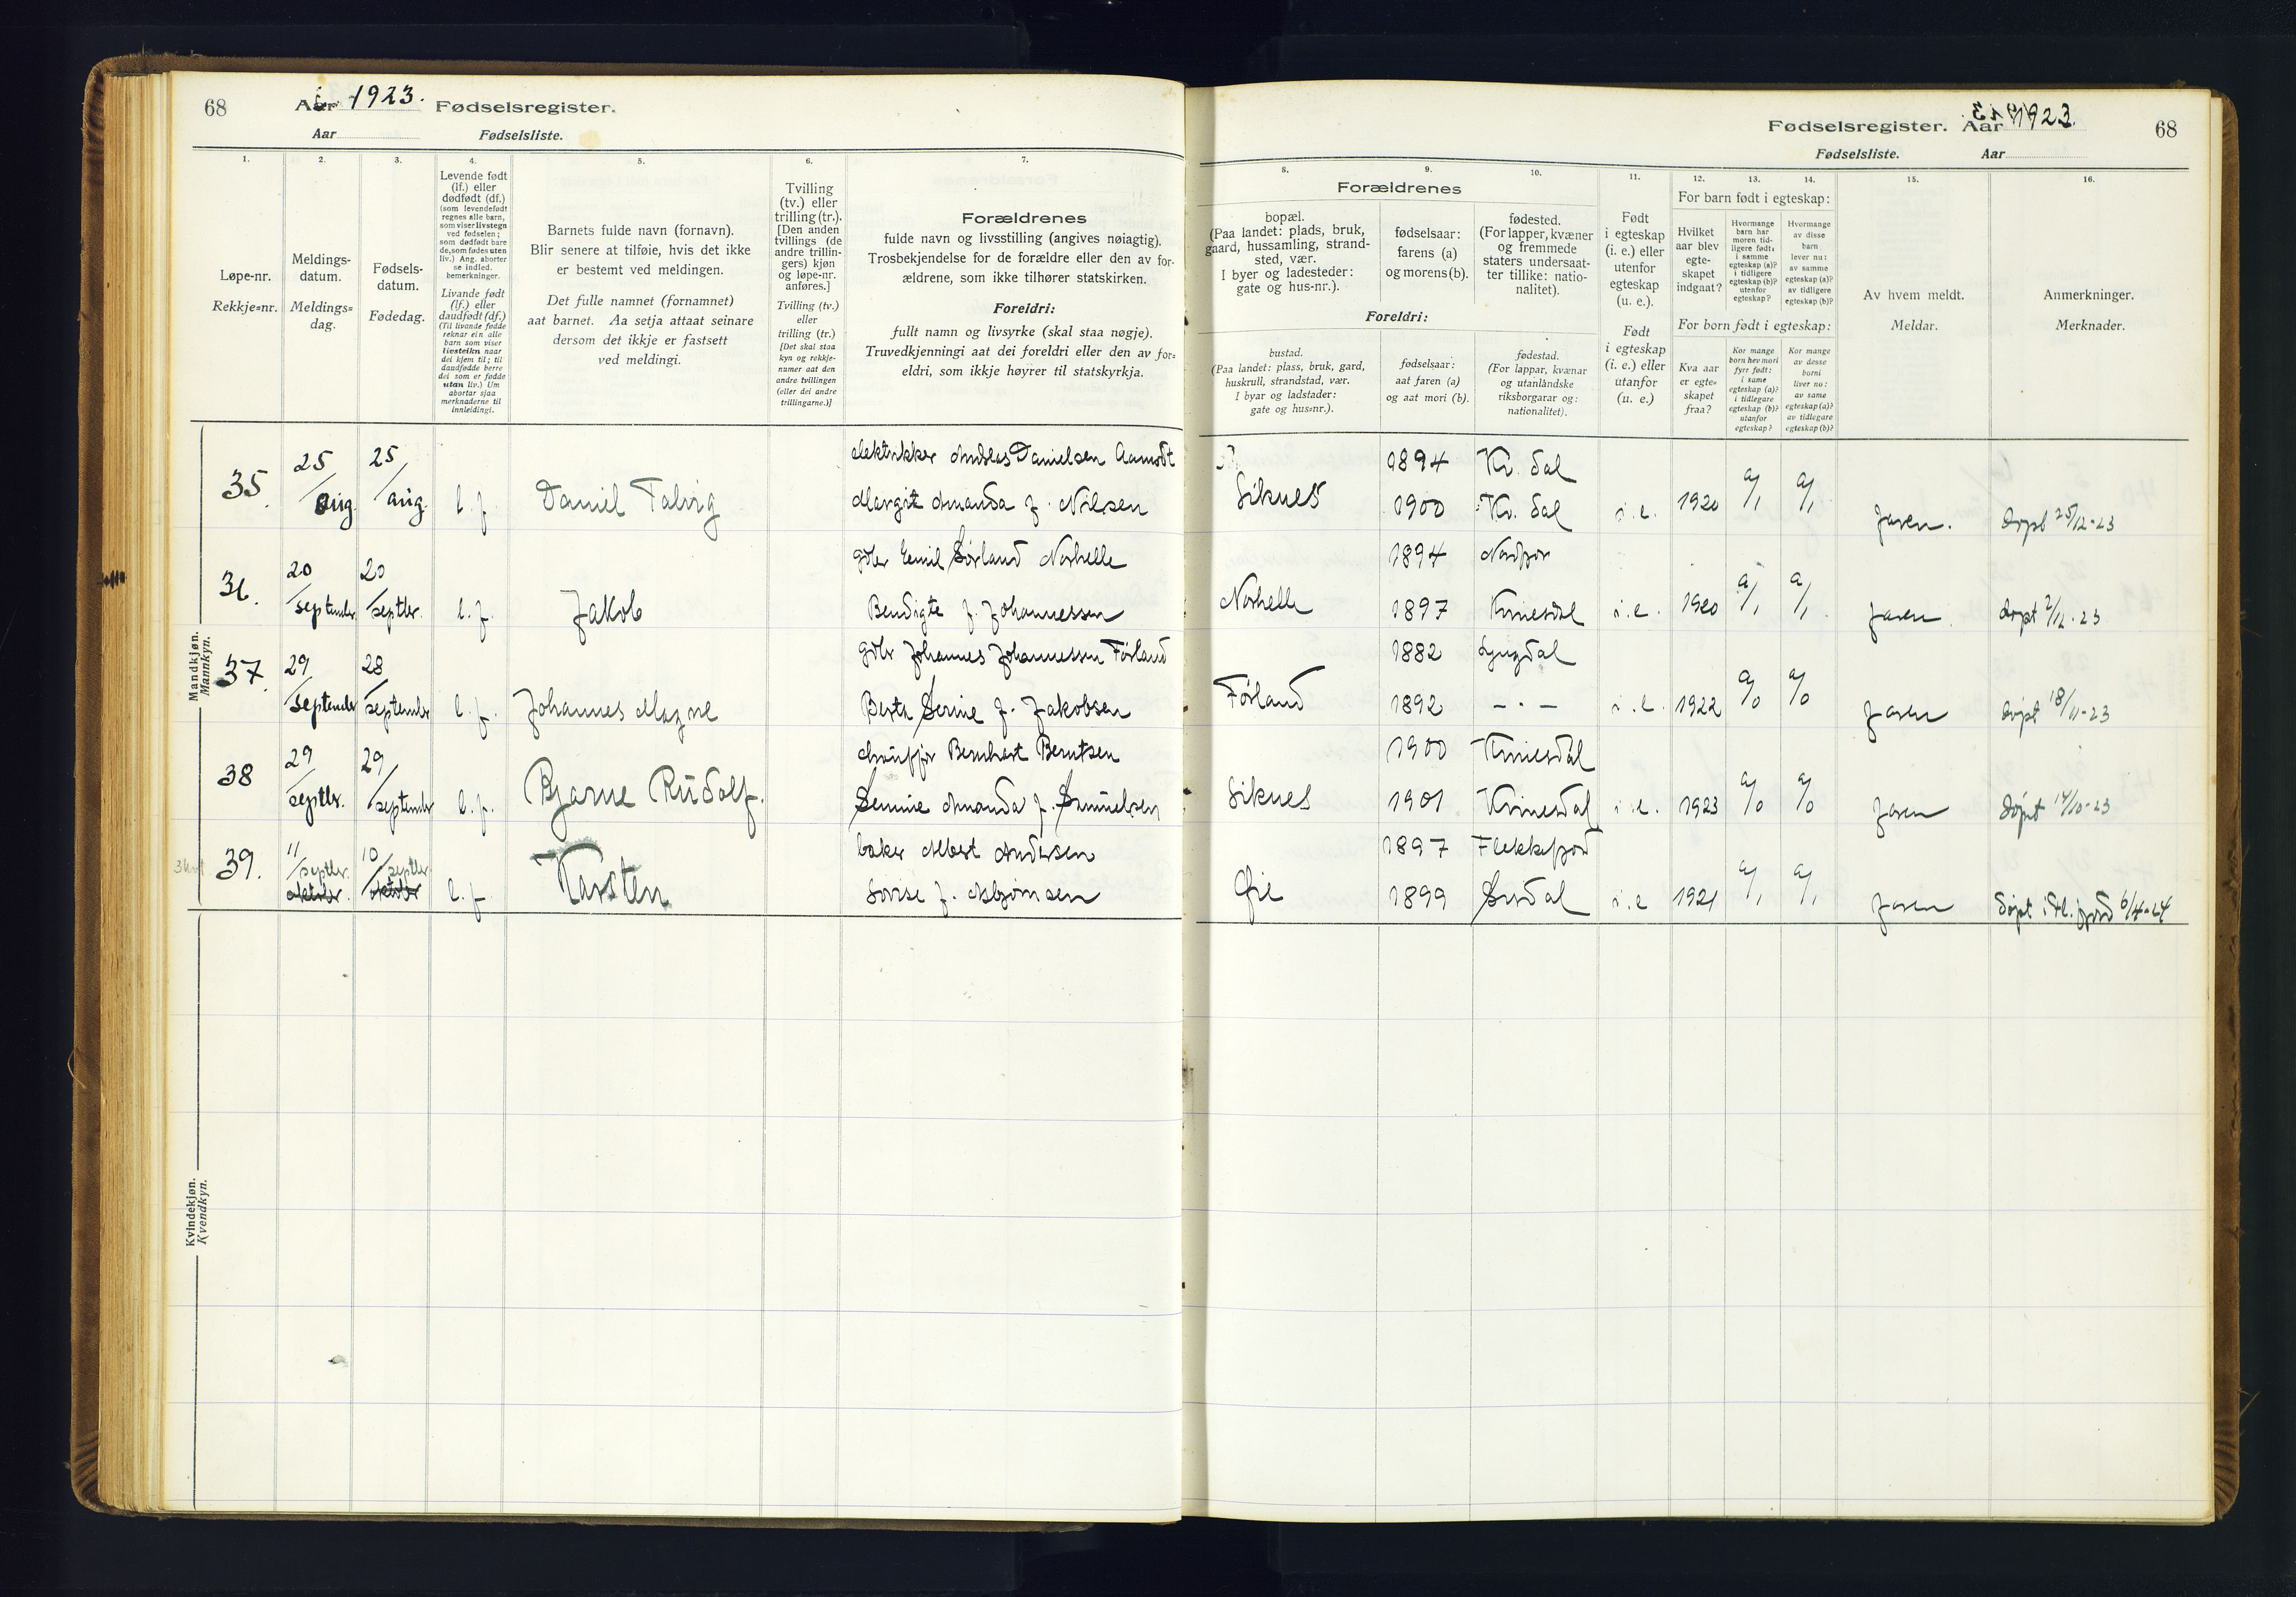 68 Aar 1923. Fødselsregister.
Aar Fødselsliste.
Fødselsregister. Aar 1923. 68
Fødselsliste. Aar
1. 2. 3. 4. 5. 6. 7.
Løpe-nr.
Rekkje=nr.
Meldings-
datum.
Meldings=
dag.
Fødsels-
datum.
Fødedag.
Levende født
(lf.) eller
dødfødt (df.)
(som levendefødt
regnes alle barn,
som viser livstegn
ved fødselen;
som dødfødt bare
de, som fødes uten
liv.) Ang. aborter
se indled.
bemerkninger.
Livande født
(lf.) eller
daudfødt (df.)
(Til livande fødde
reknar ein alle
barn som viser
livsteikn naar
dei kjem til; til
daudfødde berre
dei som er fødde
utan liv.) Um
abortar sjaa
merknaderne til
innleidingi.
Barnets fulde navn (fornavn).
Blir senere at tilføie, hvis det ikke
er bestemt ved meldingen.
Det fulle namnet (fornamnet)
aat barnet. Aa setja attaat seinare
dersom det ikkje er fastsett
ved meldingi.
Tvilling
(tv.) eller
trilling (tr.).
[Den anden
tvillings (de
andre trillin-
gers) kjøn
og løpe-nr.
anføres.]
Tvilling (tv.)
eller
trilling (tr.)
[Det skal staa
kyn og rekkje-
numer aat den
andre tvillingen
(eller dei andre
trillingarne.)]
Forældrenes
fulde navn og livsstilling (angives nøiagtig).
Trosbekjendelse for de forældre eller den av for-
ældrene, som ikke tilhører statskirken.
Foreldri:
fullt namn og livsyrke (skal staa nøgje).
Truvedkjenningi aat dei foreldri eller den av for=
eldri, som ikkje høyrer til statskyrkja.
8. 9. 10. 11. 12. 13. 14. 15. 16.
Forældrenes
bopæl.
(Paa landet: plads, bruk,
gaard, hussamling, strand-
sted, vær.
I byer og ladesteder:
gate og hus-nr.).
fødselsaar:
farens (a)
og morens (b).
fødested.
(For lapper, kvæner
og fremmede
staters undersaat-
ter tillike: natio-
nalitet).
Foreldri:
bustad.
(Paa landet: plass, bruk, gard,
huskrull, strandstad, vær.
I byar og ladstader:
gate og hus=nr.).
fødselsaar:
aat faren (a)
og aat mori (b).
fødestad.
(For lappar, kvænar
og utanlåndske
riksborgarar og:
nationalitet).
Født
i egteskap
(i. e.) eller
utenfor
egteskap
(u. e.).
Født
i egteskap
(i. e.) eller
utanfor
(u. e.)
For barn født i egteskap:
Hvilket
aar blev
egte-
skapet
indgaat?
Hvormange
barn har
moren tid-
ligere født:
i samme
egteskap (a)?
i tidligere
egteskap (b)?
utenfor
egteskap?
Hvormange
av disse
barn
lever nu:
av samme
egteskap (a)?
av tidligere
egteskap (b)?
For born født i egteskap:
Kva aar
er egte=
skapet
fraa?
Kor mange
born hev mori
fyrr født:
i same
egteskap (a)?
i tidlegare
egteskap (b)?
utanfor
egteskap?
Kor mange
av desse
borni
liver no:
av same
egteskap (a)?
av tidlegare
egteskap (b)?
Av hvem meldt.
Meldar.
Anmerkninger.
Merknader.
Mandkjøn.
Mannkyn.
35. 25/aug. 25/aug. l. f. Daniel Talvig
elektrikker Andreas Danielsen Aamodt 1894 Kv. dal
Margit Amanda f. Nilsen 1900 Kv. dal i. e. 1920 a/1 a/1 faren. døpt 25/12-23
36. 20/september 20/septbr. l. f. Jakob
gbr. Emil Sørland Norhelle 1894
Bendigte f. Johannessen Norhelle 1897 Kvinesdal i. e. 1920 a/1 a/1 faren døpt 2/12-23
37. 29/september 28/september l. f. Johannes Magne
gbr. Johannes Johannessen Førland 1882 Lyngdal
Berta Serine f. Jakobsen Førland 1892 — " — i. e. 1922 a/0 a/0 faren døpt 18/11-23
38 29/septbr. 29/september l. f. Bjarne Rudolf.
chauffør Bernhart Berntsen 1900 Kvinesdal
Semine Amanda f. Samuelsen 1901 Kvinesdal i. e. 1923 a/0 a/0 faren døpt 14/10-23
3 kvt 39. 11/septbr. oktober. 10/septbr. oktober l. f. Karsten
baker Albert Andersen 1897 Flekkefjord
Lovise f. Asbjørnsen Øie 1899 Sirdal i. e 1921 a/1 a/1 faren døpt i Fl.fjord 6/4-24
Kvindekjøn.
Kvendkyn.